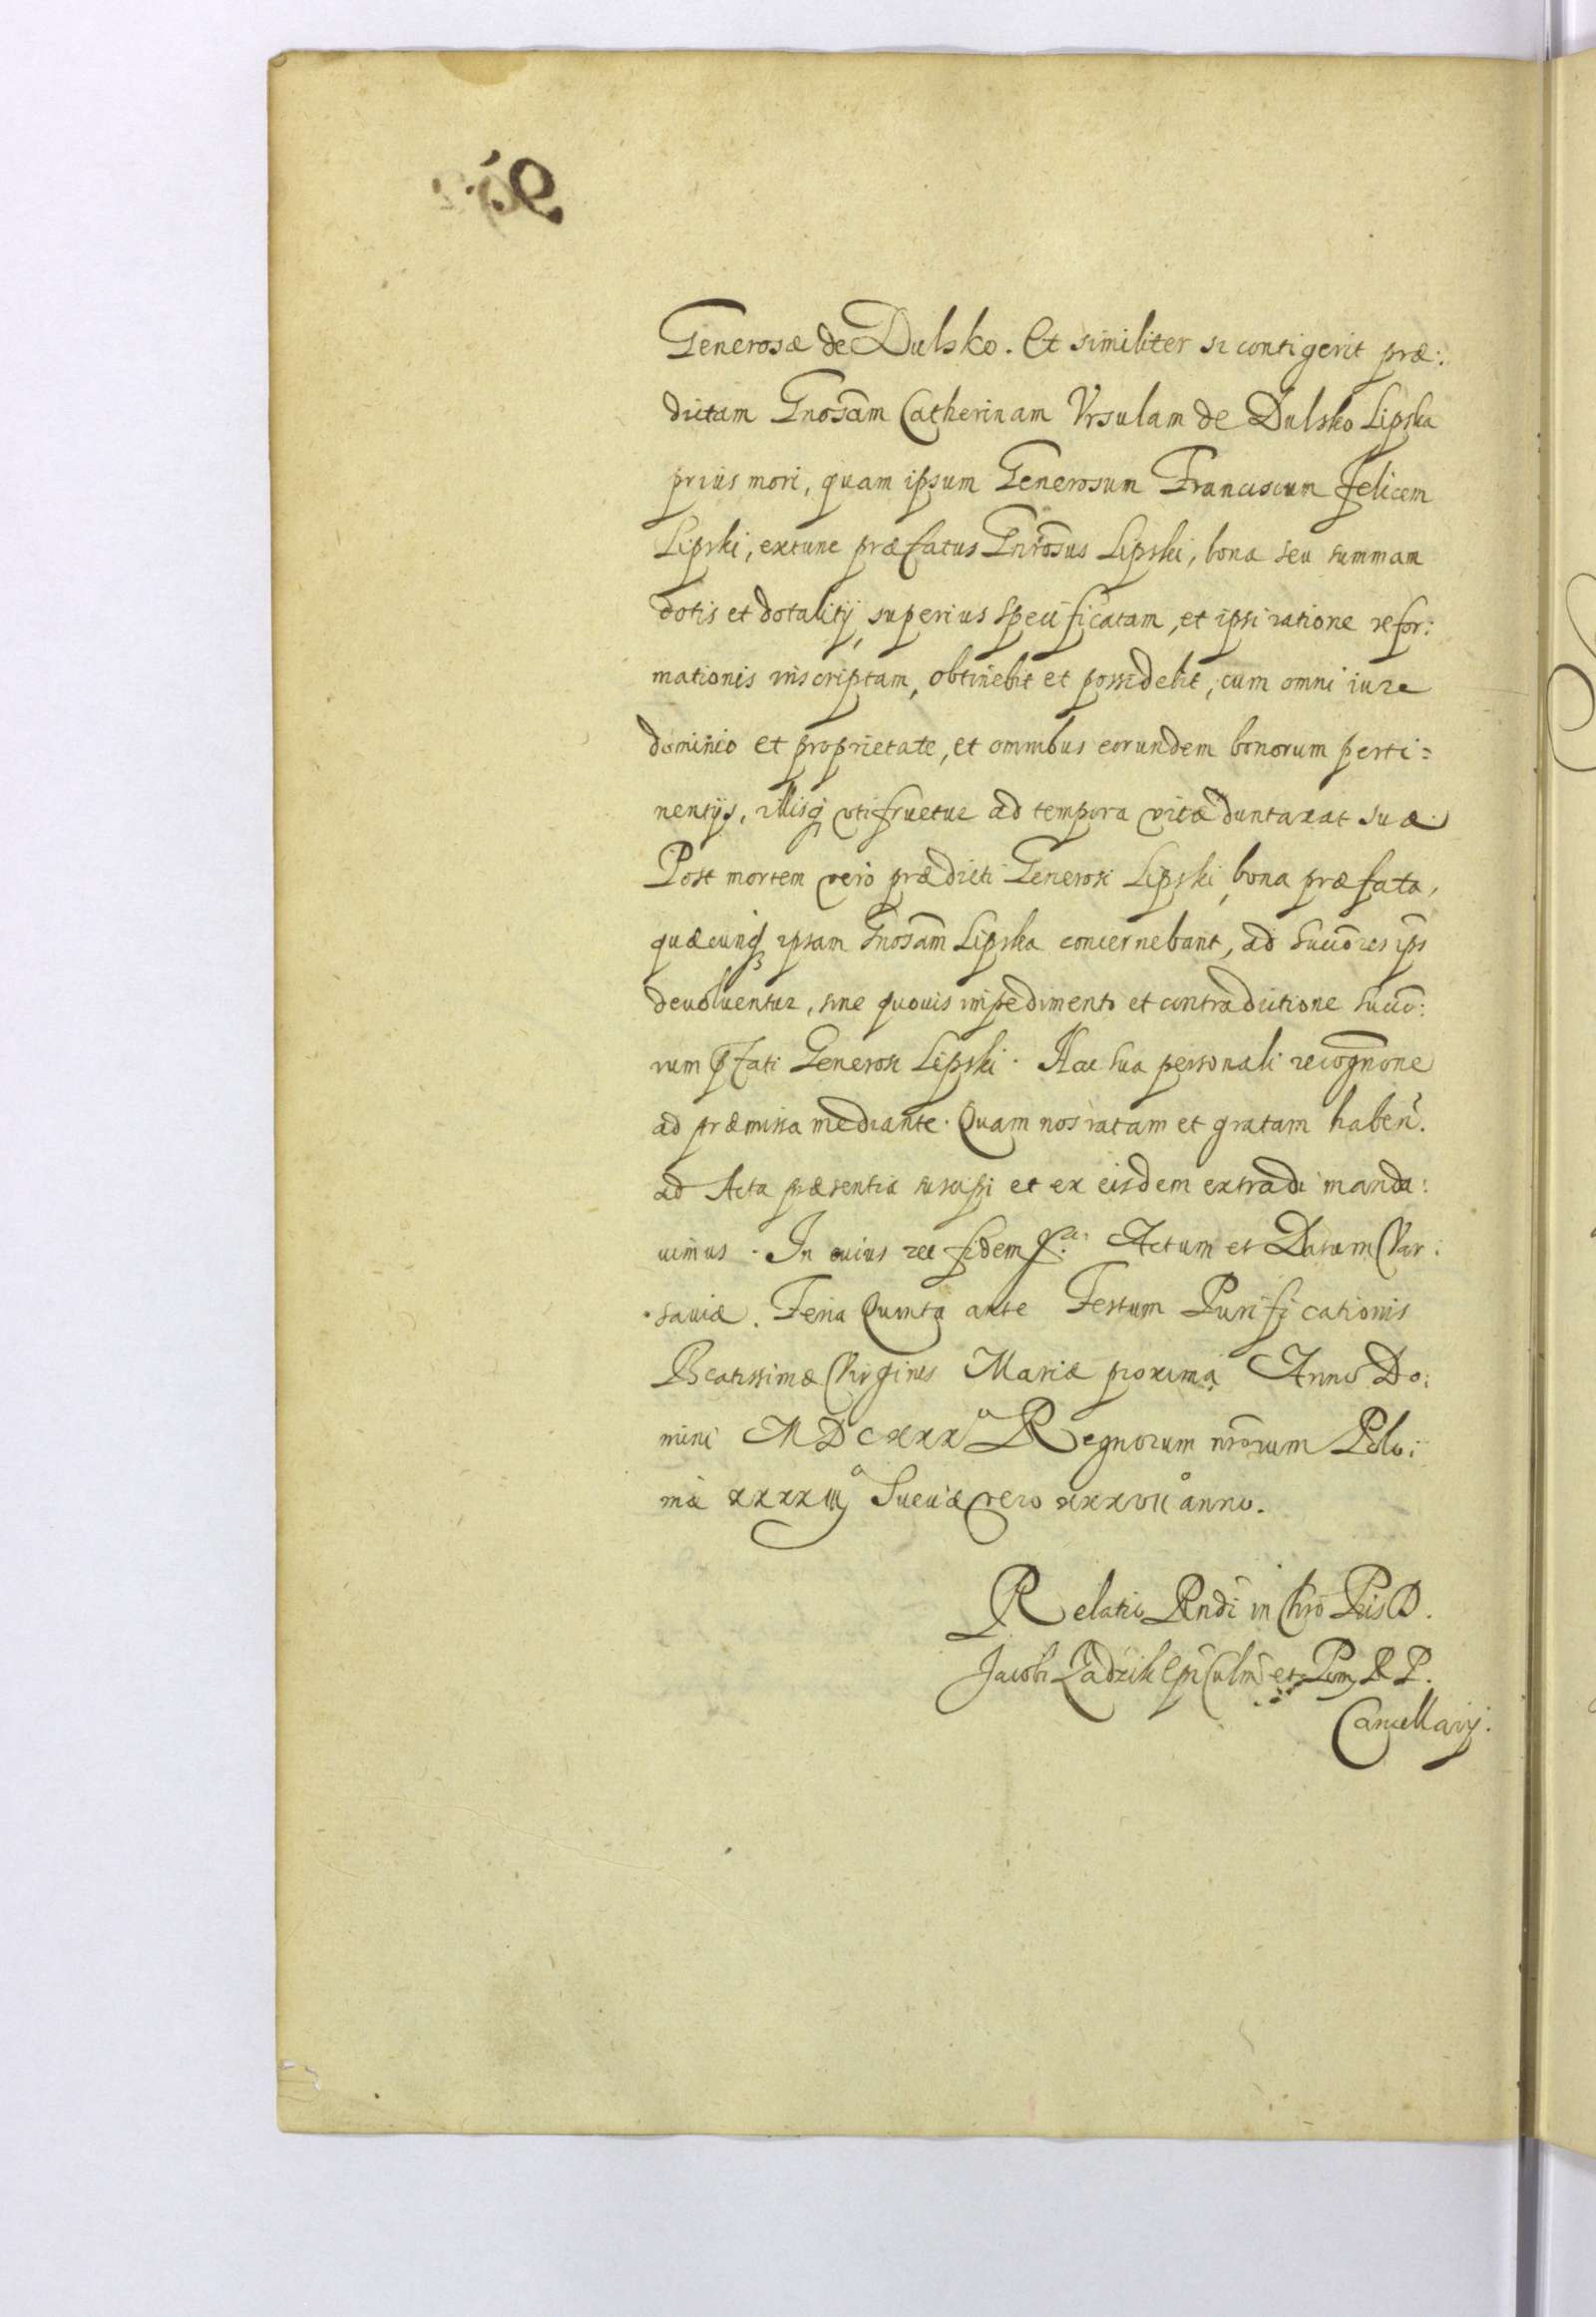 Generosæ de Dulsko. Et similiter si contigerit præ:
dictam Gnosam Catherinam Vrsulam de Dulsko Lipska
prius mori, quam ipsum Generosum Franciscum Felicem
Lipski, extunc præfatus Gnrosus Lipski, bona seu summam
dotis et dotalitij superius specificatam, et ipsi ratione refor:
mationis inscriptam, obtinebit et possidebit, cum omni iure
dominio et proprietate, et omnibus eorundem bonorum perti=
nentijs, illisq utifruetur ad tempora vitæ duntaxat suæ
Post mortem vero prædicti Generosi Lipski, bona præfata,
quæcunq ipsam Gnosam Lipska concernebant, ad succores ips
deuoluentur, sine quouis impedimento et contradictione succo:
rum pfati Generosi Lipski. Hac sua personali recognone
ad præmissa mediante. Quam nos ratam et gratam haben.
ad Acta præsentia suscipi et ex eisdem extradi manda:
uimus. In cuius rei fidem Actum et Datum Var:
sauiæ. Feria Quinta ante Festum Purificationis
Beatissimæ Virginis Mariæ proxima Anno Do:
mini MDCXXXo Regnorum nrorum Polo:
niæ xxxxiijo Sueciæ vero xxxvii anno.
Relatio Rndi in Chro Pris D.
Jacobi Zadzik Epi Culm et Pom R P.
Cancellarij.